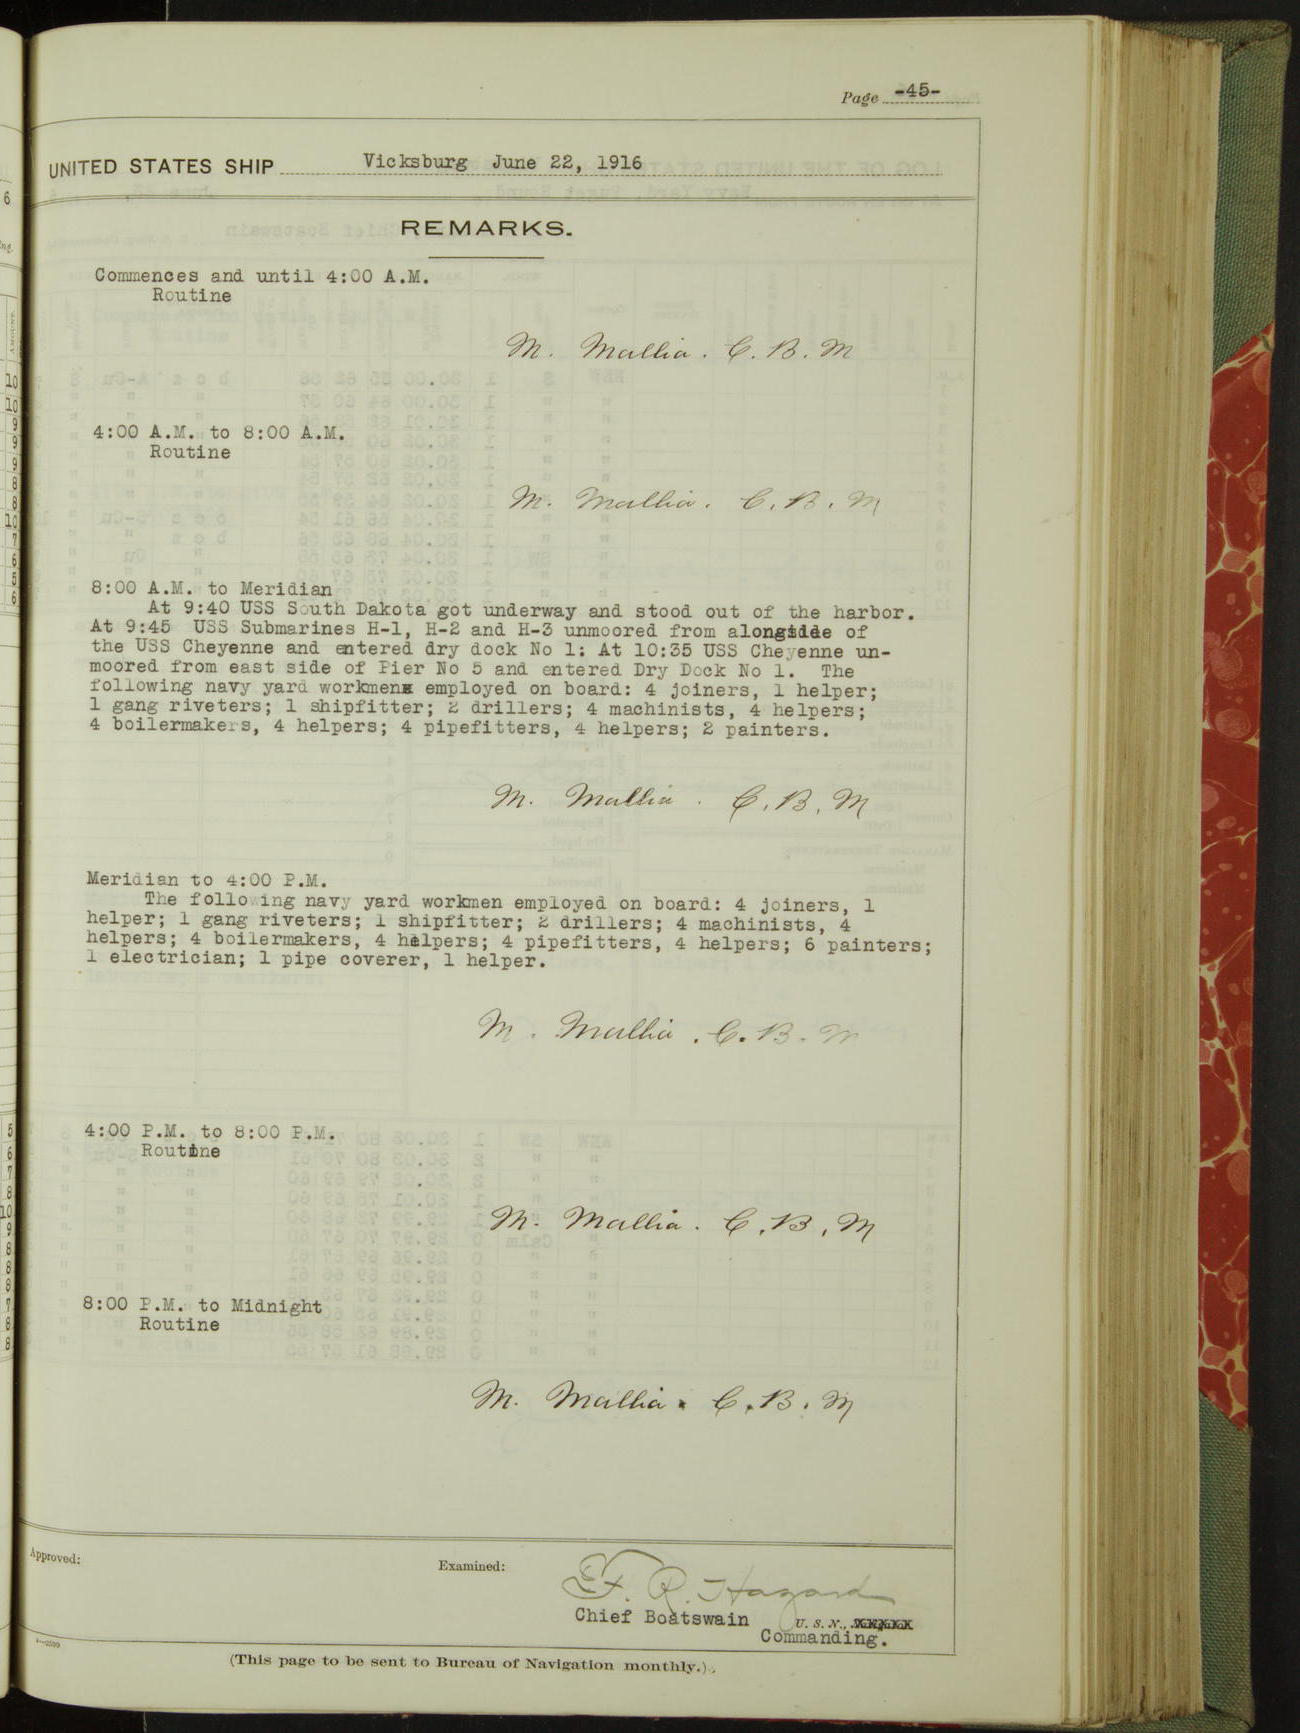 Page -45-
UNITED STATES SHIP Vicksburg June 22, 1916
REMARKS.
Commences and until 4:00 A.M.
Routine
M. Mallia. C. B. M
4:00 A.M. to 8:00 A.M.
Routine
M. Mallia. C. B. M
8:00 A.M. to Meridian
At 9:40 USS South Dakota got underway and stood out of the harbor.
At 9:45 USS Submarines H-1, H-2 and H-3 unmoored from alongside of
the USS Cheyenne and entered dry dock No 1: At 10:35 USS Cheyenne un-
moored from east side of Pier No 5 and entered Dry Dock No 1. The
following navy yard workmen employed on board: 4 joiners, 1 helper;
1 gang riveters; 1 shipfitter; 2 drillers; 4 machinists, 4 helpers;
4 boilermakers, 4 helpers; 4 pipefitters, 4 helpers; 2 painters.
M. Mallia. C. B. M
Meridian to 4:00 P.M.
The following navy yard workmen employed on board: 4 joiners, 1
helper; 1 gang riveters; 1 shipfitter; 2 drillers; 4 machinists, 4
helpers; 4 boilermakers, 4 helpers; 4 pipefitters, 4 helpers; 6 painters;
1 electrician; 1 pipe coverer, 1 helper.
M. Mallia. C. B. M
4:00 P.M. to 8:00 P.M.
Routine
M. Mallia. C. B. M
8:00 P.M. to Midnight
Routine
M. Mallia. C. B. M
Approved:
Examined:
F. R. Hazard
Chief Boatswain U. S. N.,
Commanding.
(This page to be sent to Bureau of Navigation monthly.)